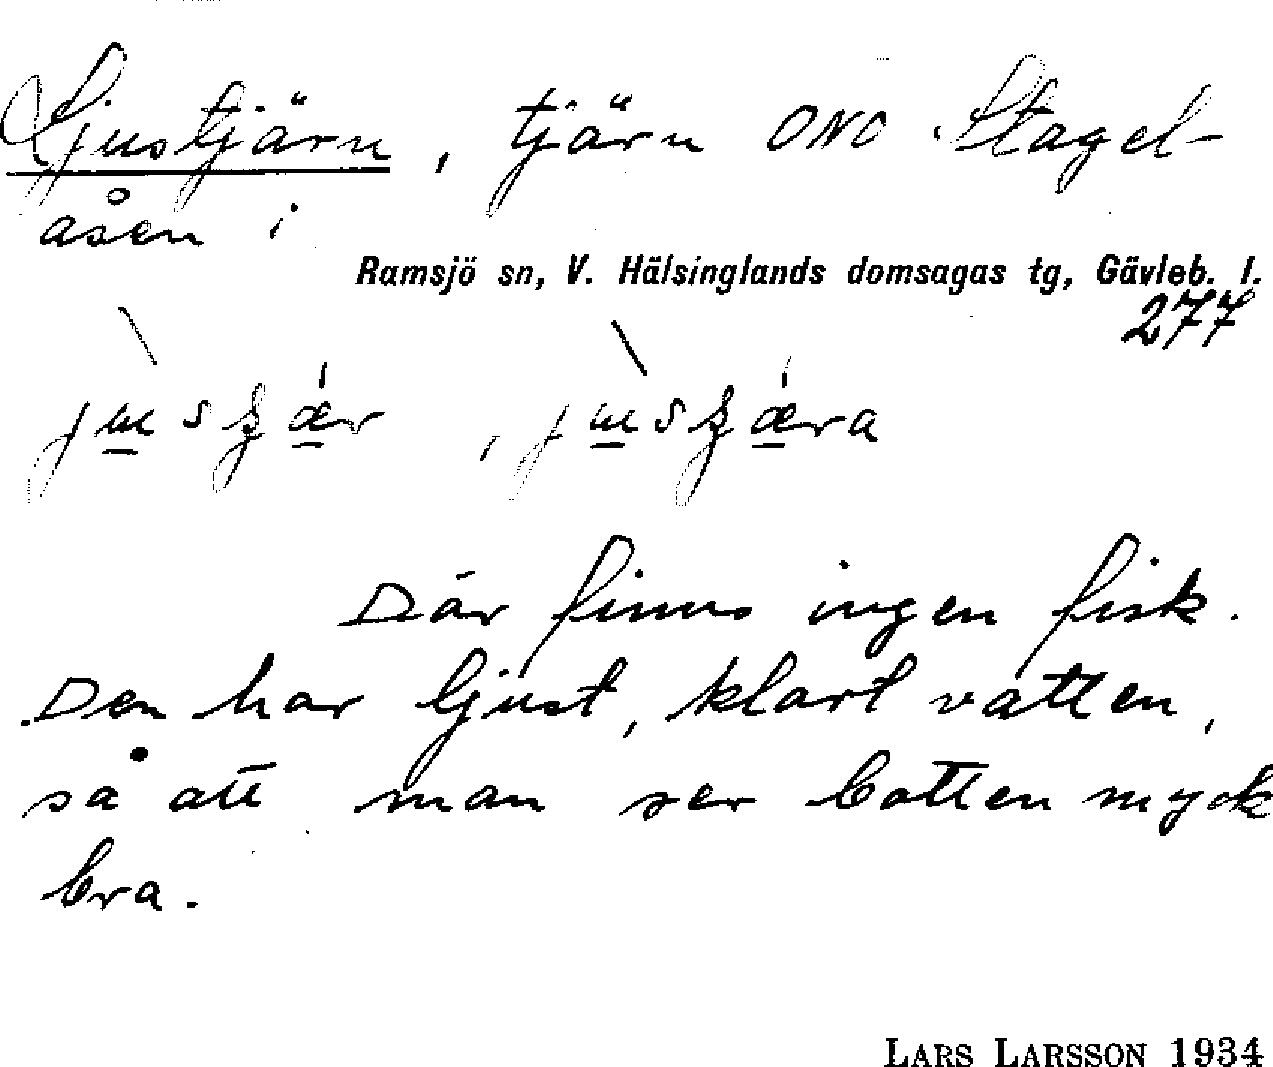 Ljustjärn, tjärn ONO Stagel-
åsen i
Ramsjö sn, V. Hälsinglands domsagas tg, Gävleb. l.
277
Där finns ingen fisk.
Den har ljust, klart vatten,
så att man ser botten myck
bra.
LARS LARSSON 1934